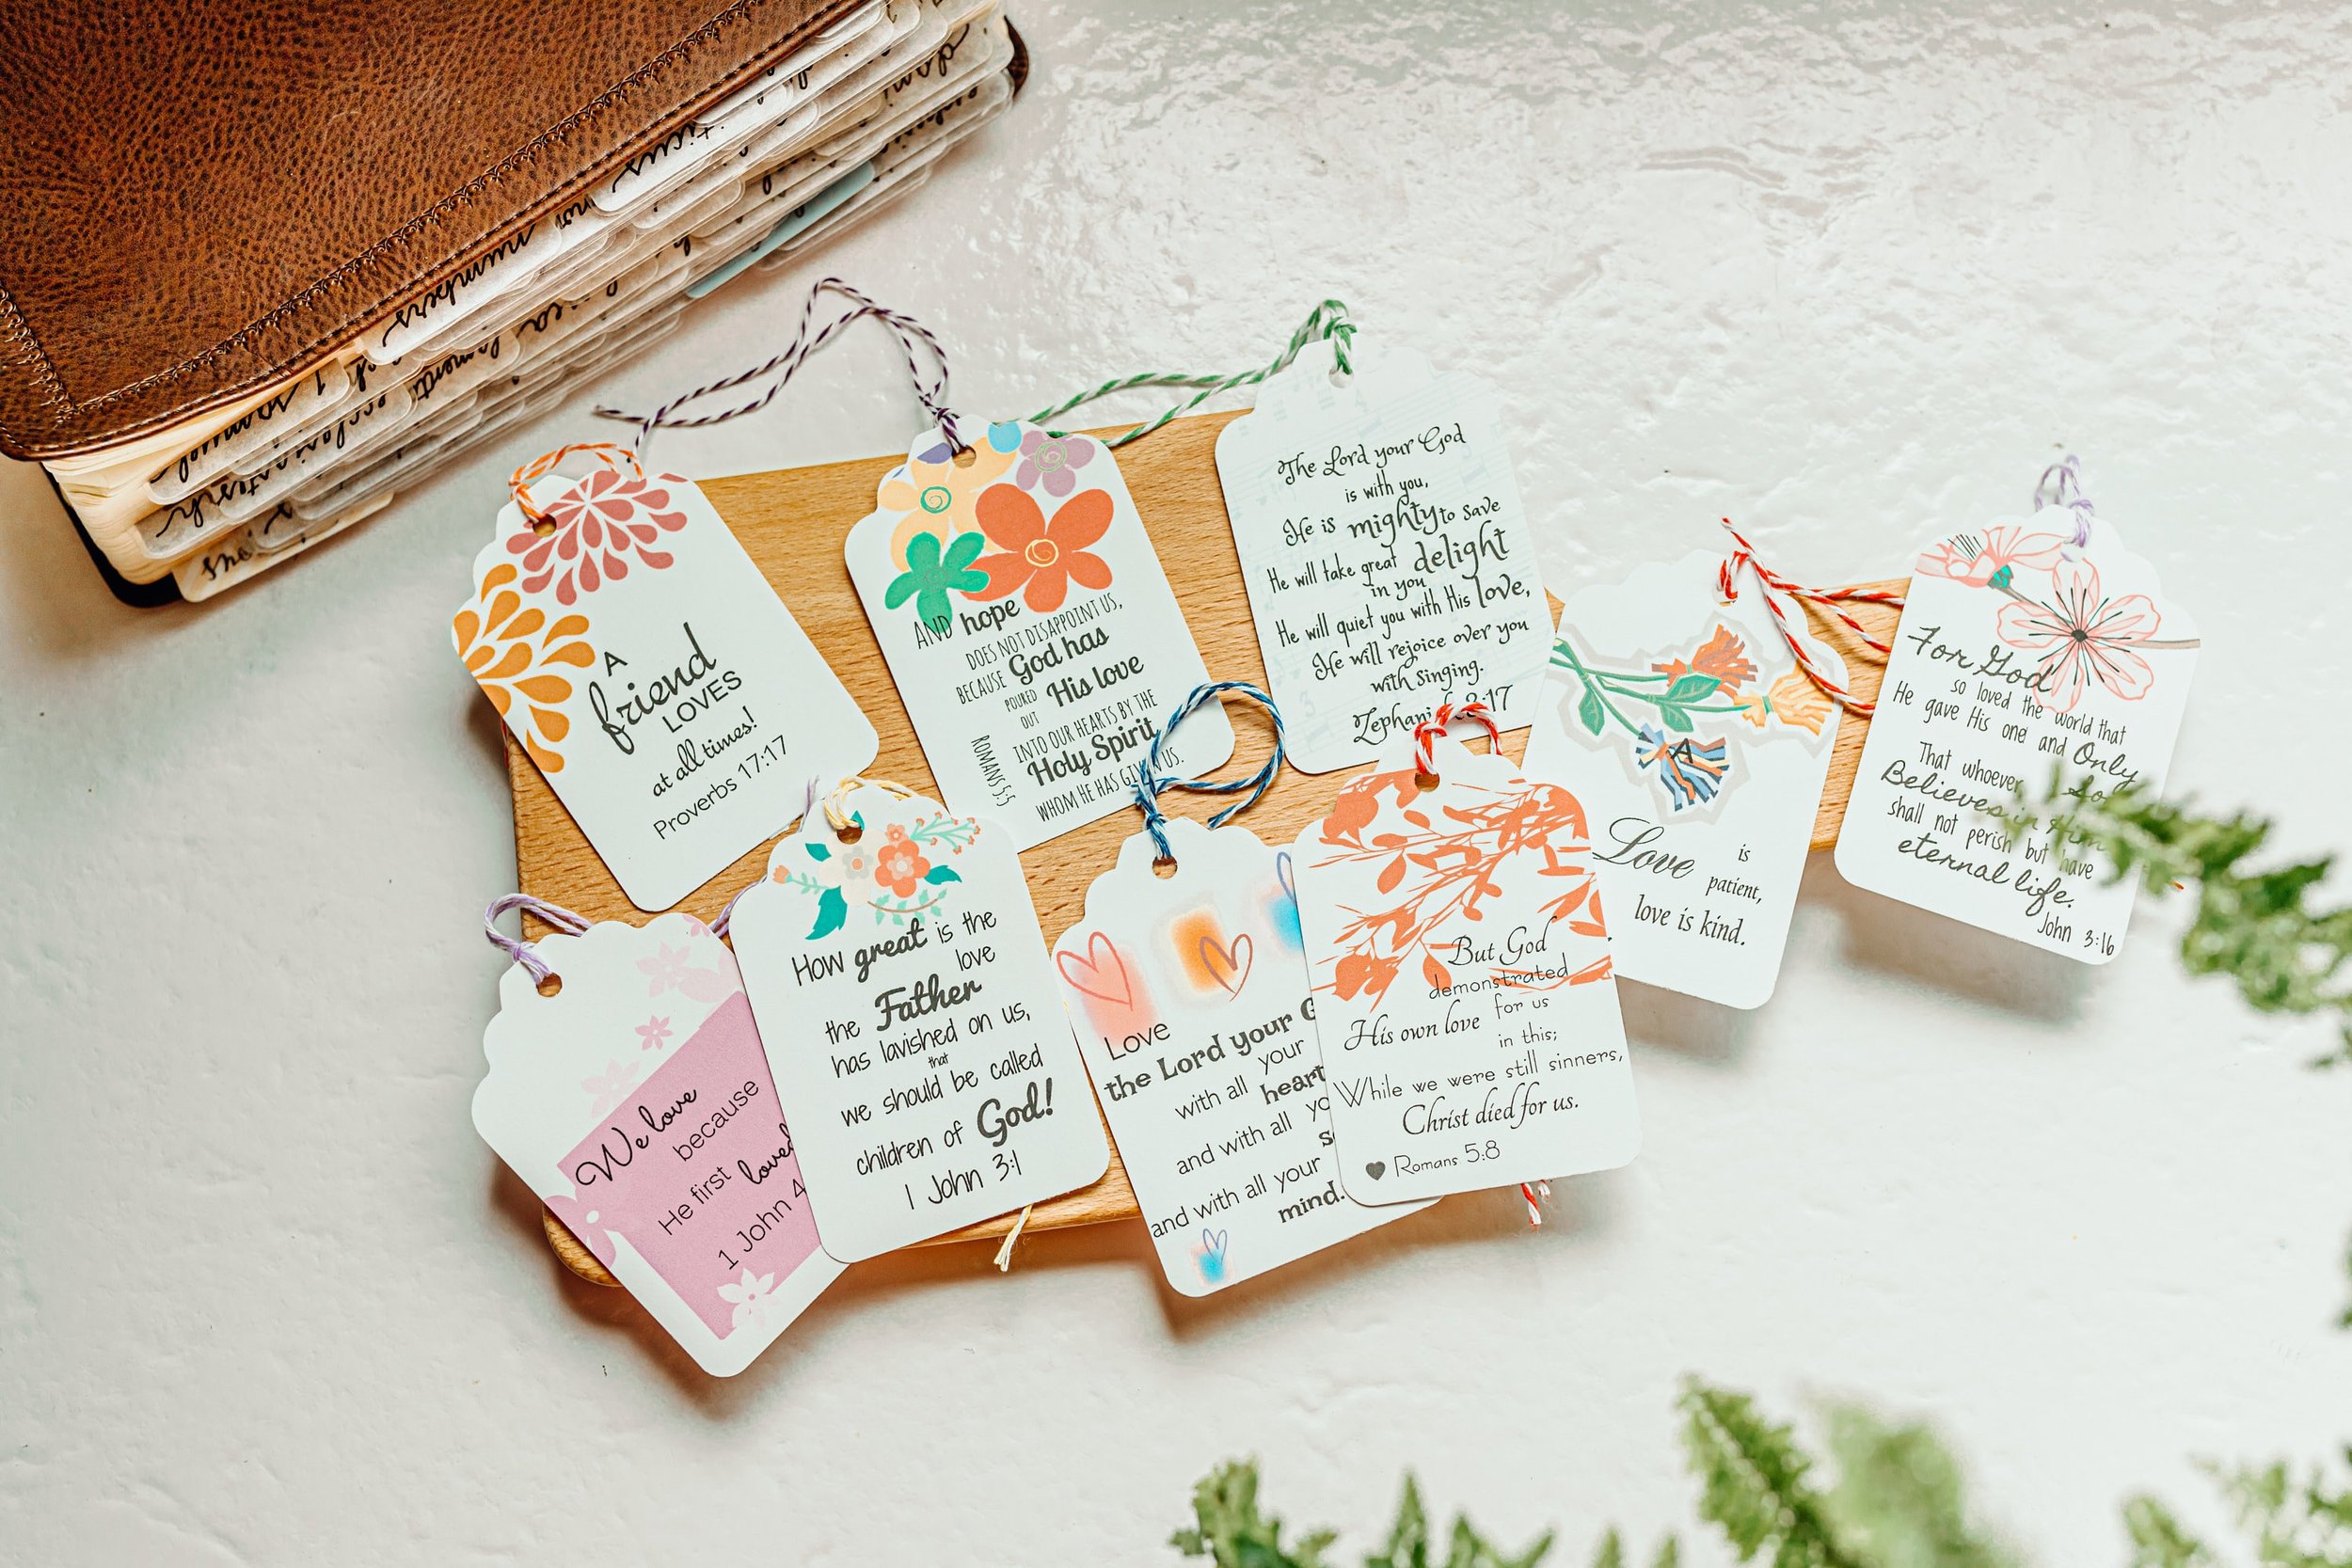 numbers
1 samuel
A
friend
LOVES
at all times!
Proverbs 17:17
AND hope
DOES NOT DISAPPOINT US,
BECAUSE God has
POURED
OUT His love
INTO OUR HEARTS BY THE
Holy Spirit
WHOM HE HAS GIVEN US.
ROMANS 5:5
The Lord your God
is with you,
He is mighty to save
He will take great delight
in you
He will quiet you with His love,
He will rejoice over you
with singing.
Love is
patient,
love is kind.
A
For God
so loved the world that
He gave His one and Only
Son
That whoever
Believes in Him
shall not perish but have
eternal life.
John 3:16
We love
because
He first loved
1 John 4
How great is the
love
the Father
has lavished on us,
that
we should be called
children of God!
1 John 3:1
Love
the Lord your G
with all your
heart
and with all yo
s
and with all your
mind.
But God
demonstrated
His own love for us
in this;
While we were still sinners,
Christ died for us.
Romans 5:8